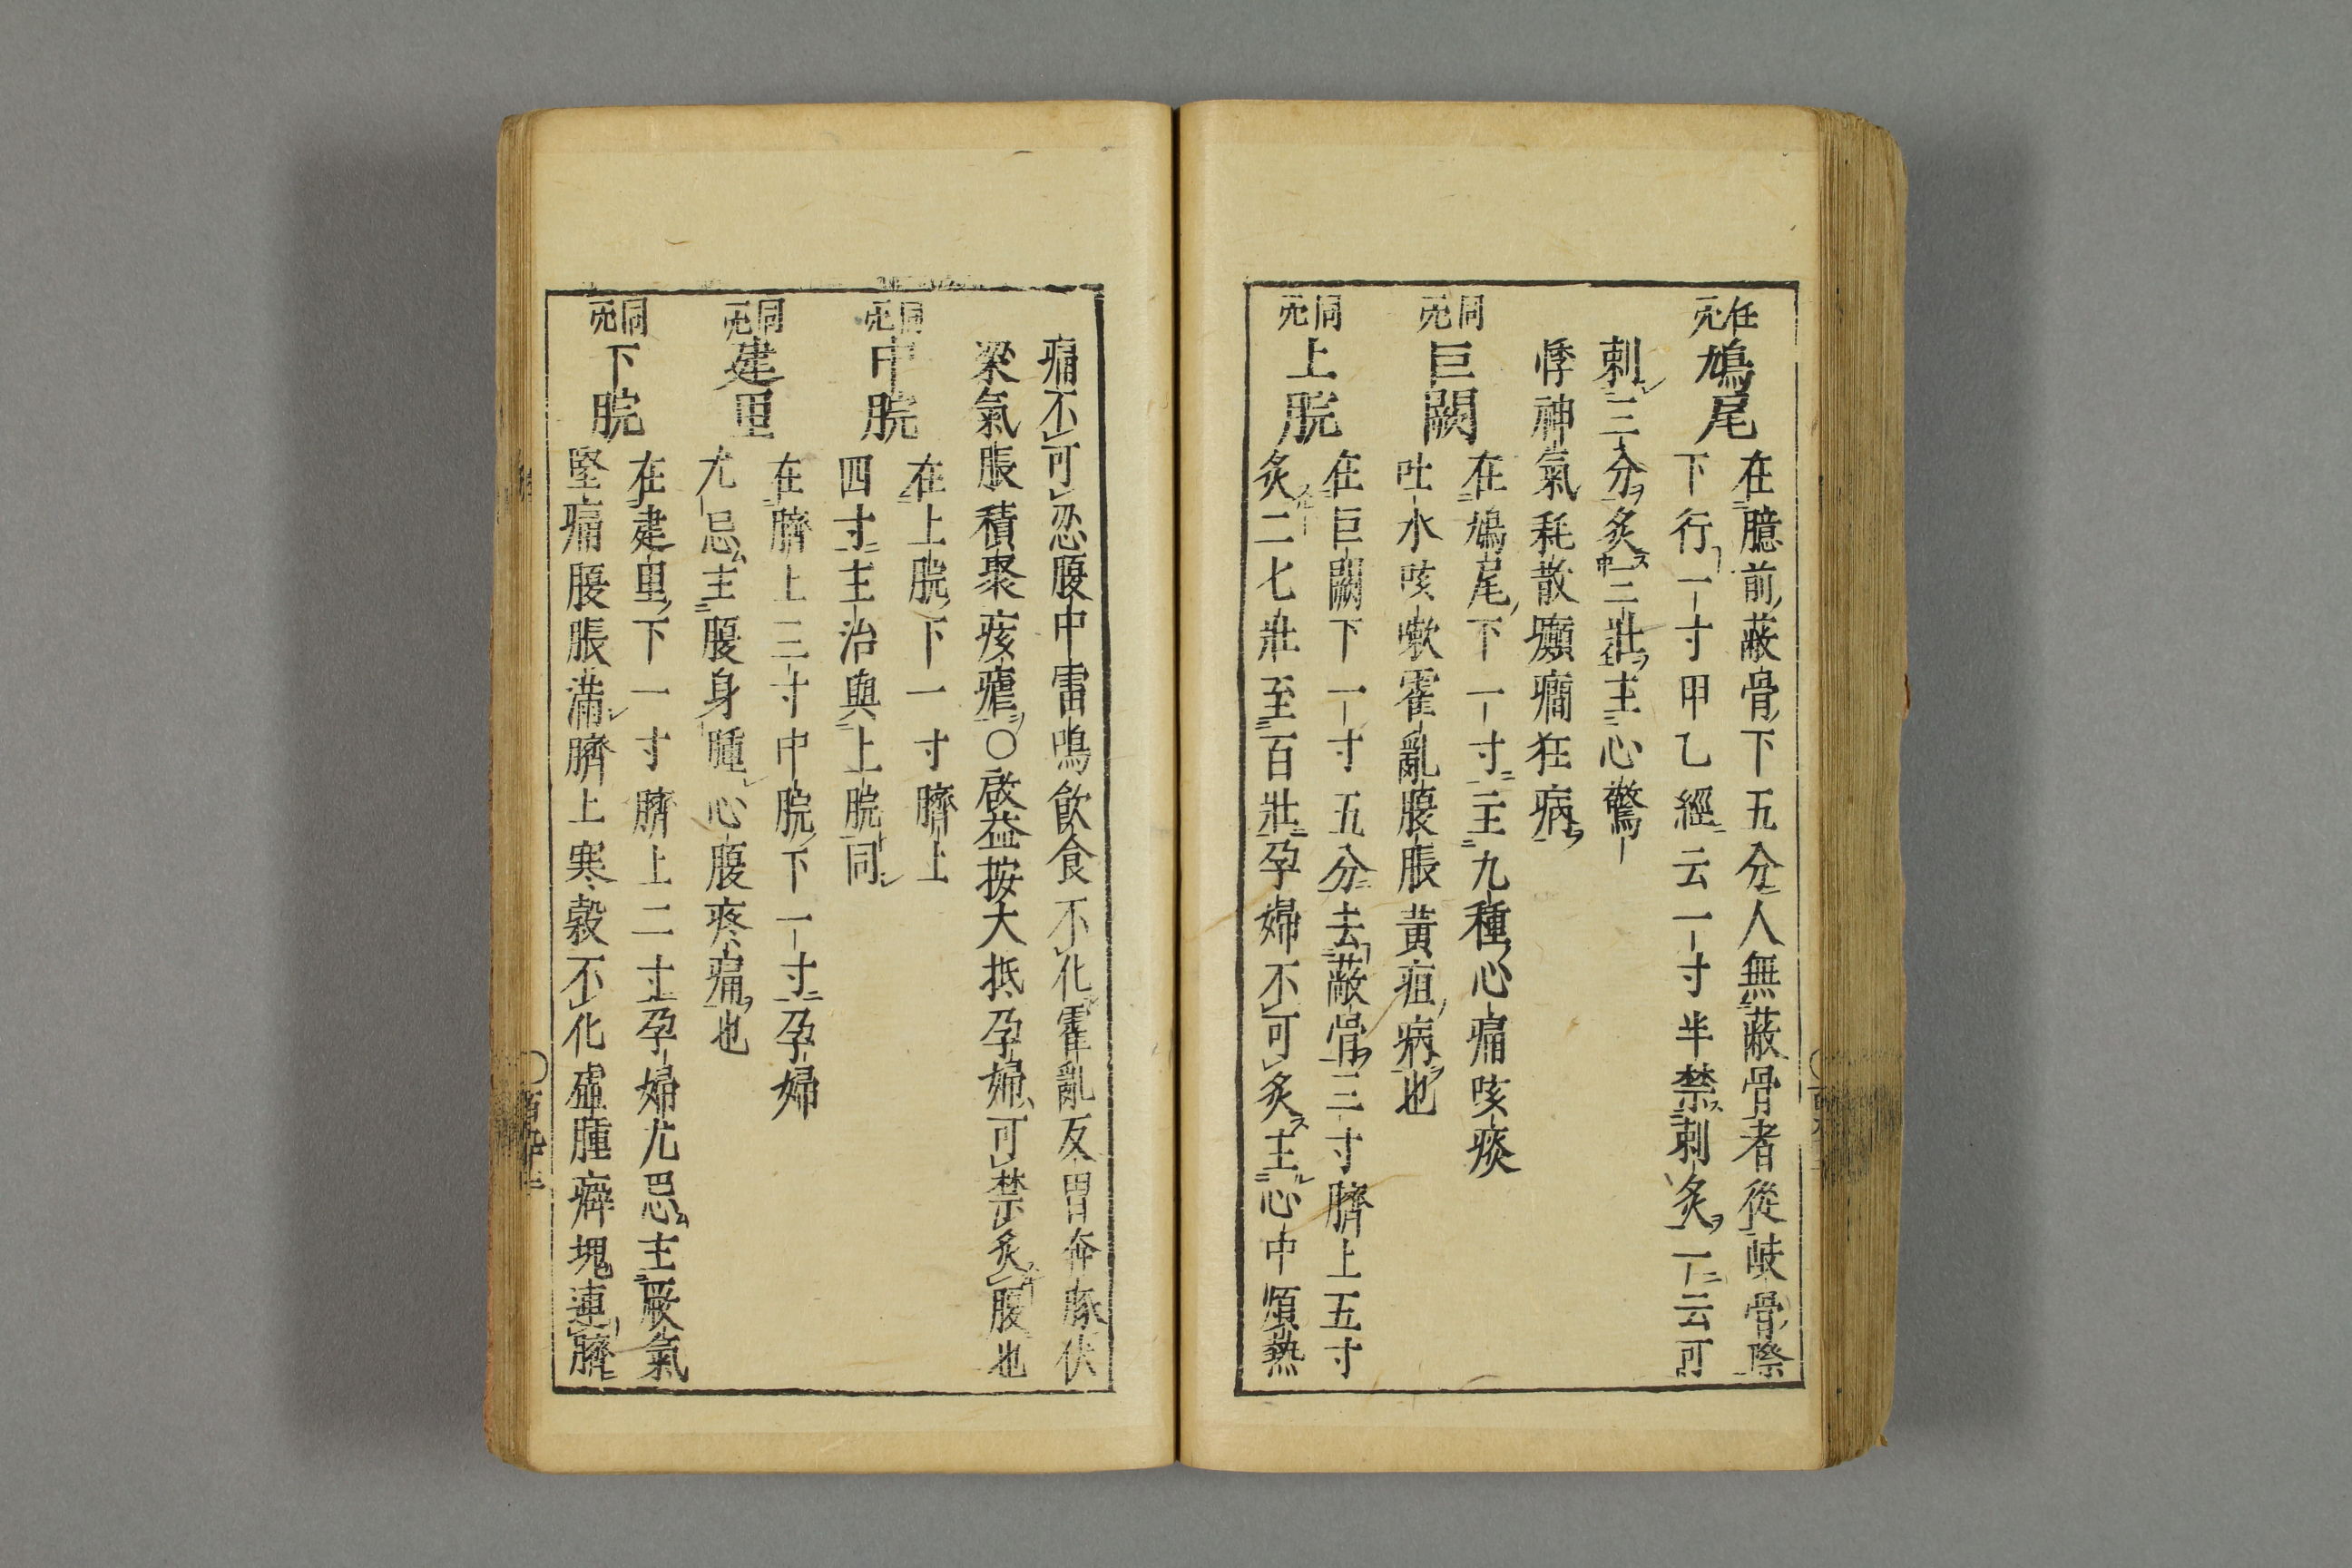 任
穴
鳩尾
在臆前蔽骨下五分人無蔽骨者從岐骨際
下行一寸甲乙經云一寸半禁刺灸一云可
刺三分灸三壯主心驚
悸神氣耗散癲癇狂病
同
穴
巨闕
在鳩尾下一寸主九種心痛咳痰
吐水咳嗽霍亂腹脹黃疸病也
同
穴
上脘
在巨闕下一寸五分去蔽骨三寸臍上五寸
灸二七壯至百壯孕婦不可灸主心中煩熱
痛不可忍腹中雷鳴飲食不化霍亂反胃奔豚伏
梁氣脹積聚痎瘧○啟益按大抵孕婦可禁灸腹也
同
穴
中脘
在上脘下一寸臍上
四寸主治與上脘同
同
穴
建里
在臍上三寸中脘下一寸孕婦
尤忌主腹身腫心腹疼痛也
同
穴
下脘
在建里下一寸臍上二寸孕婦尤忌主厥氣
堅痛腹脹滿臍上寒穀不化虛腫癖塊連臍